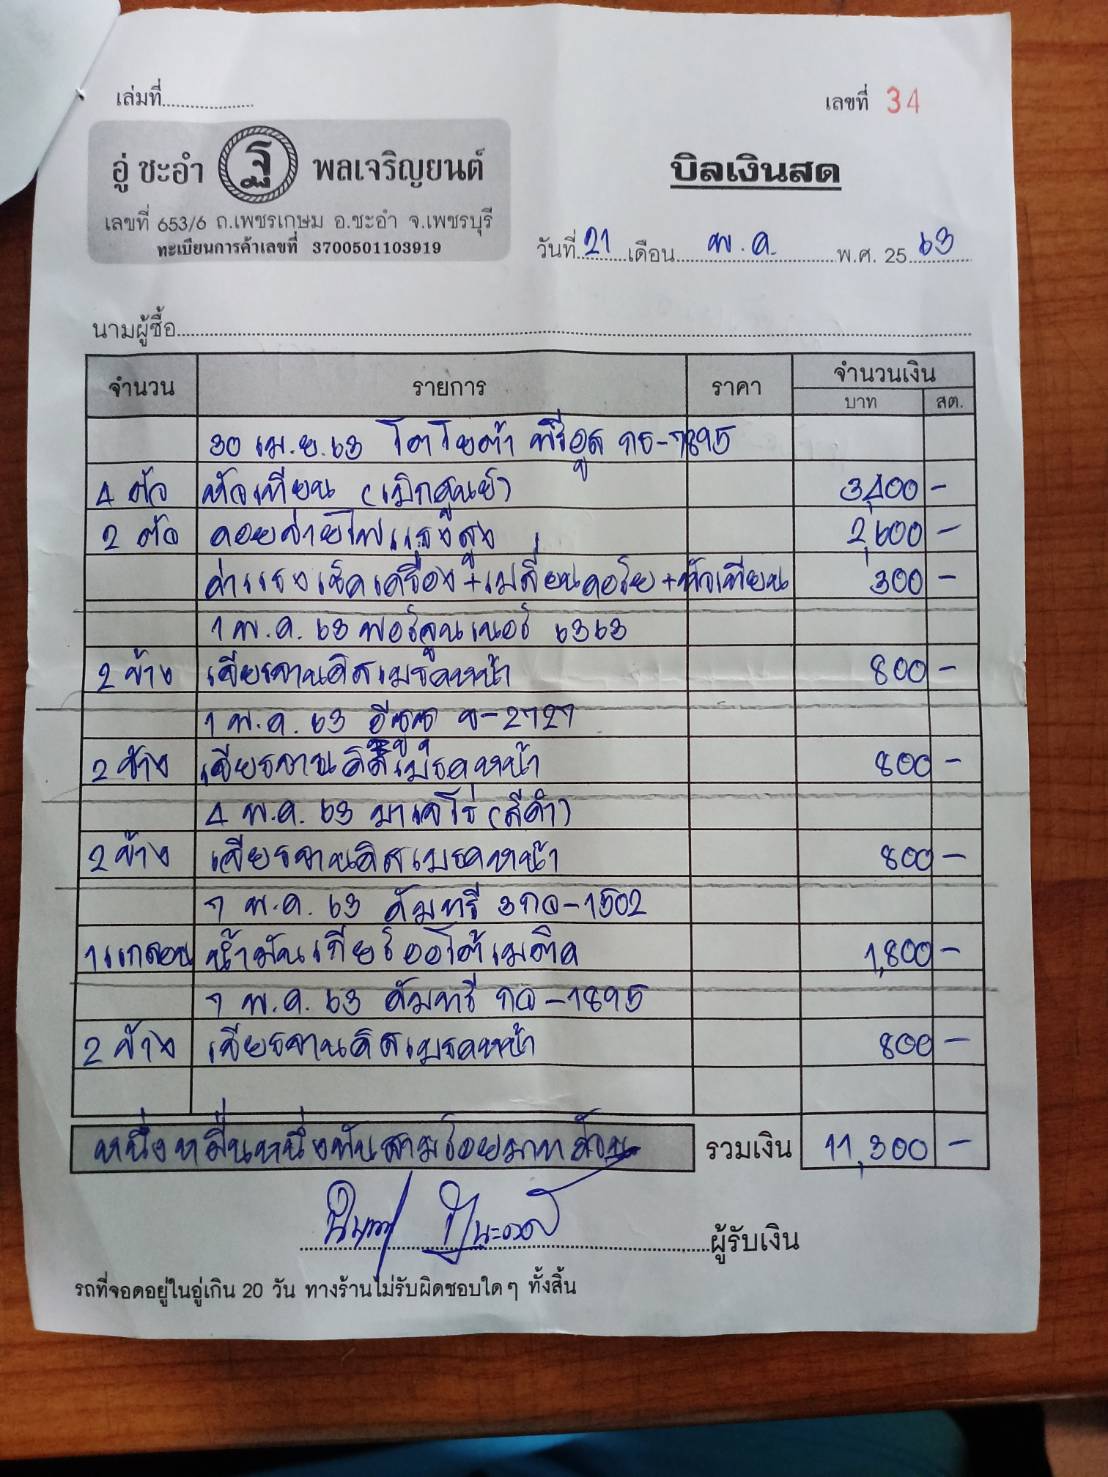 เล่มที่.................... เลขที่ 34
อู่ ชะอำ ฐ พลเจริญยนต์
บิลเงินสด
เลขที่ 653/6 ถ.เพชรเกษม อ.ชะอำ จ.เพชรบุรี
ทะเบียนการค้าเลขที่ 3700501103919
วันที่ 21 เดือน พ.ค. พ.ศ. 25 63
นามผู้ซื้อ
จำนวน รายการ ราคา จำนวนเงิน
บาท สต.
30 เม.ย. 63 โตโยต้า
4 ตัว หัวเทียน (เบิกศูนย์) 3,400 -
2 ตัว คอยจ่ายไฟแรงสูง 2,600 -
ค่าแรงเช็คเครื่อง+เปลี่ยนคอร์ย+หัวเทียน 300 -
1 พ.ค. 63 ฟอร์จูนเนอร์ 6363
2 ข้าง เจียรจานดิสเบรคหน้า 800 -
1 พ.ค. 63 อีซูซุ ข-2727
2 ข้าง เจียรจานดิสเบรคหน้า 800 -
4 พ.ค. 63 ปาเจโร่ (สีดำ)
2 ข้าง เจียรจานดิสเบรคหน้า 800 -
7 พ.ค. 63 คัมรี่ 3กอ-1502
1 แกลอน น้ำมันเกียร์ออโต้เมติค 1,800 -
7 พ.ค. 63 คัมรี่ กอ-1895
2 ข้าง เจียรจานดิสเบรคหน้า 800 -
หนึ่งหมื่นหนึ่งพันสามร้อยบาทถ้วน รวมเงิน 11,300 -
ผู้รับเงิน
รถที่จอดอยู่ในอู่เกิน 20 วัน ทางร้านไม่รับผิดชอบใดๆ ทั้งสิ้น